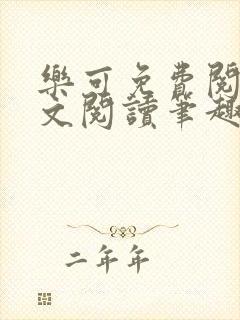 樂可免費閱
文閱讀筆趣
二年年